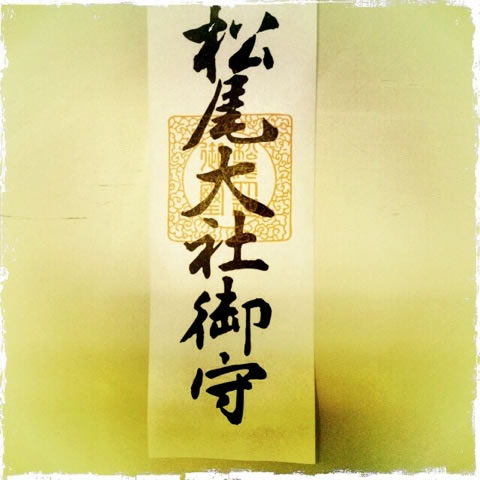 松尾大社御守